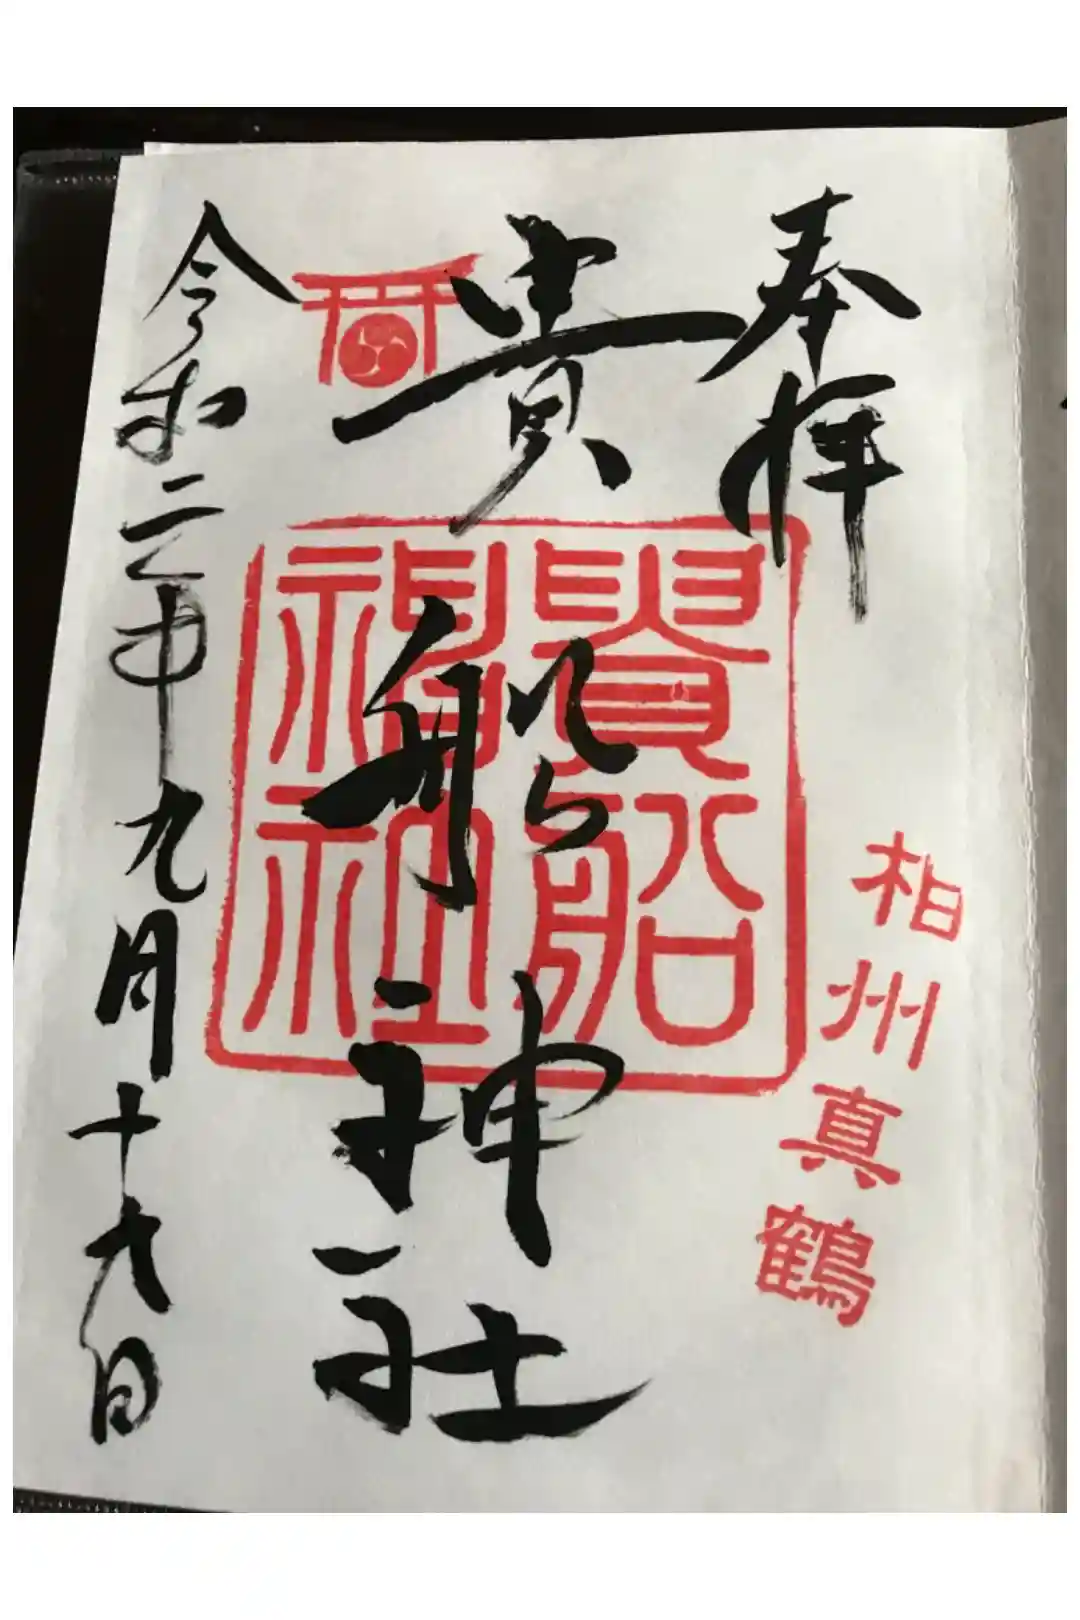 奉拝
相州真鶴
貴船神社
貴船
神社
令和二年九月十九日